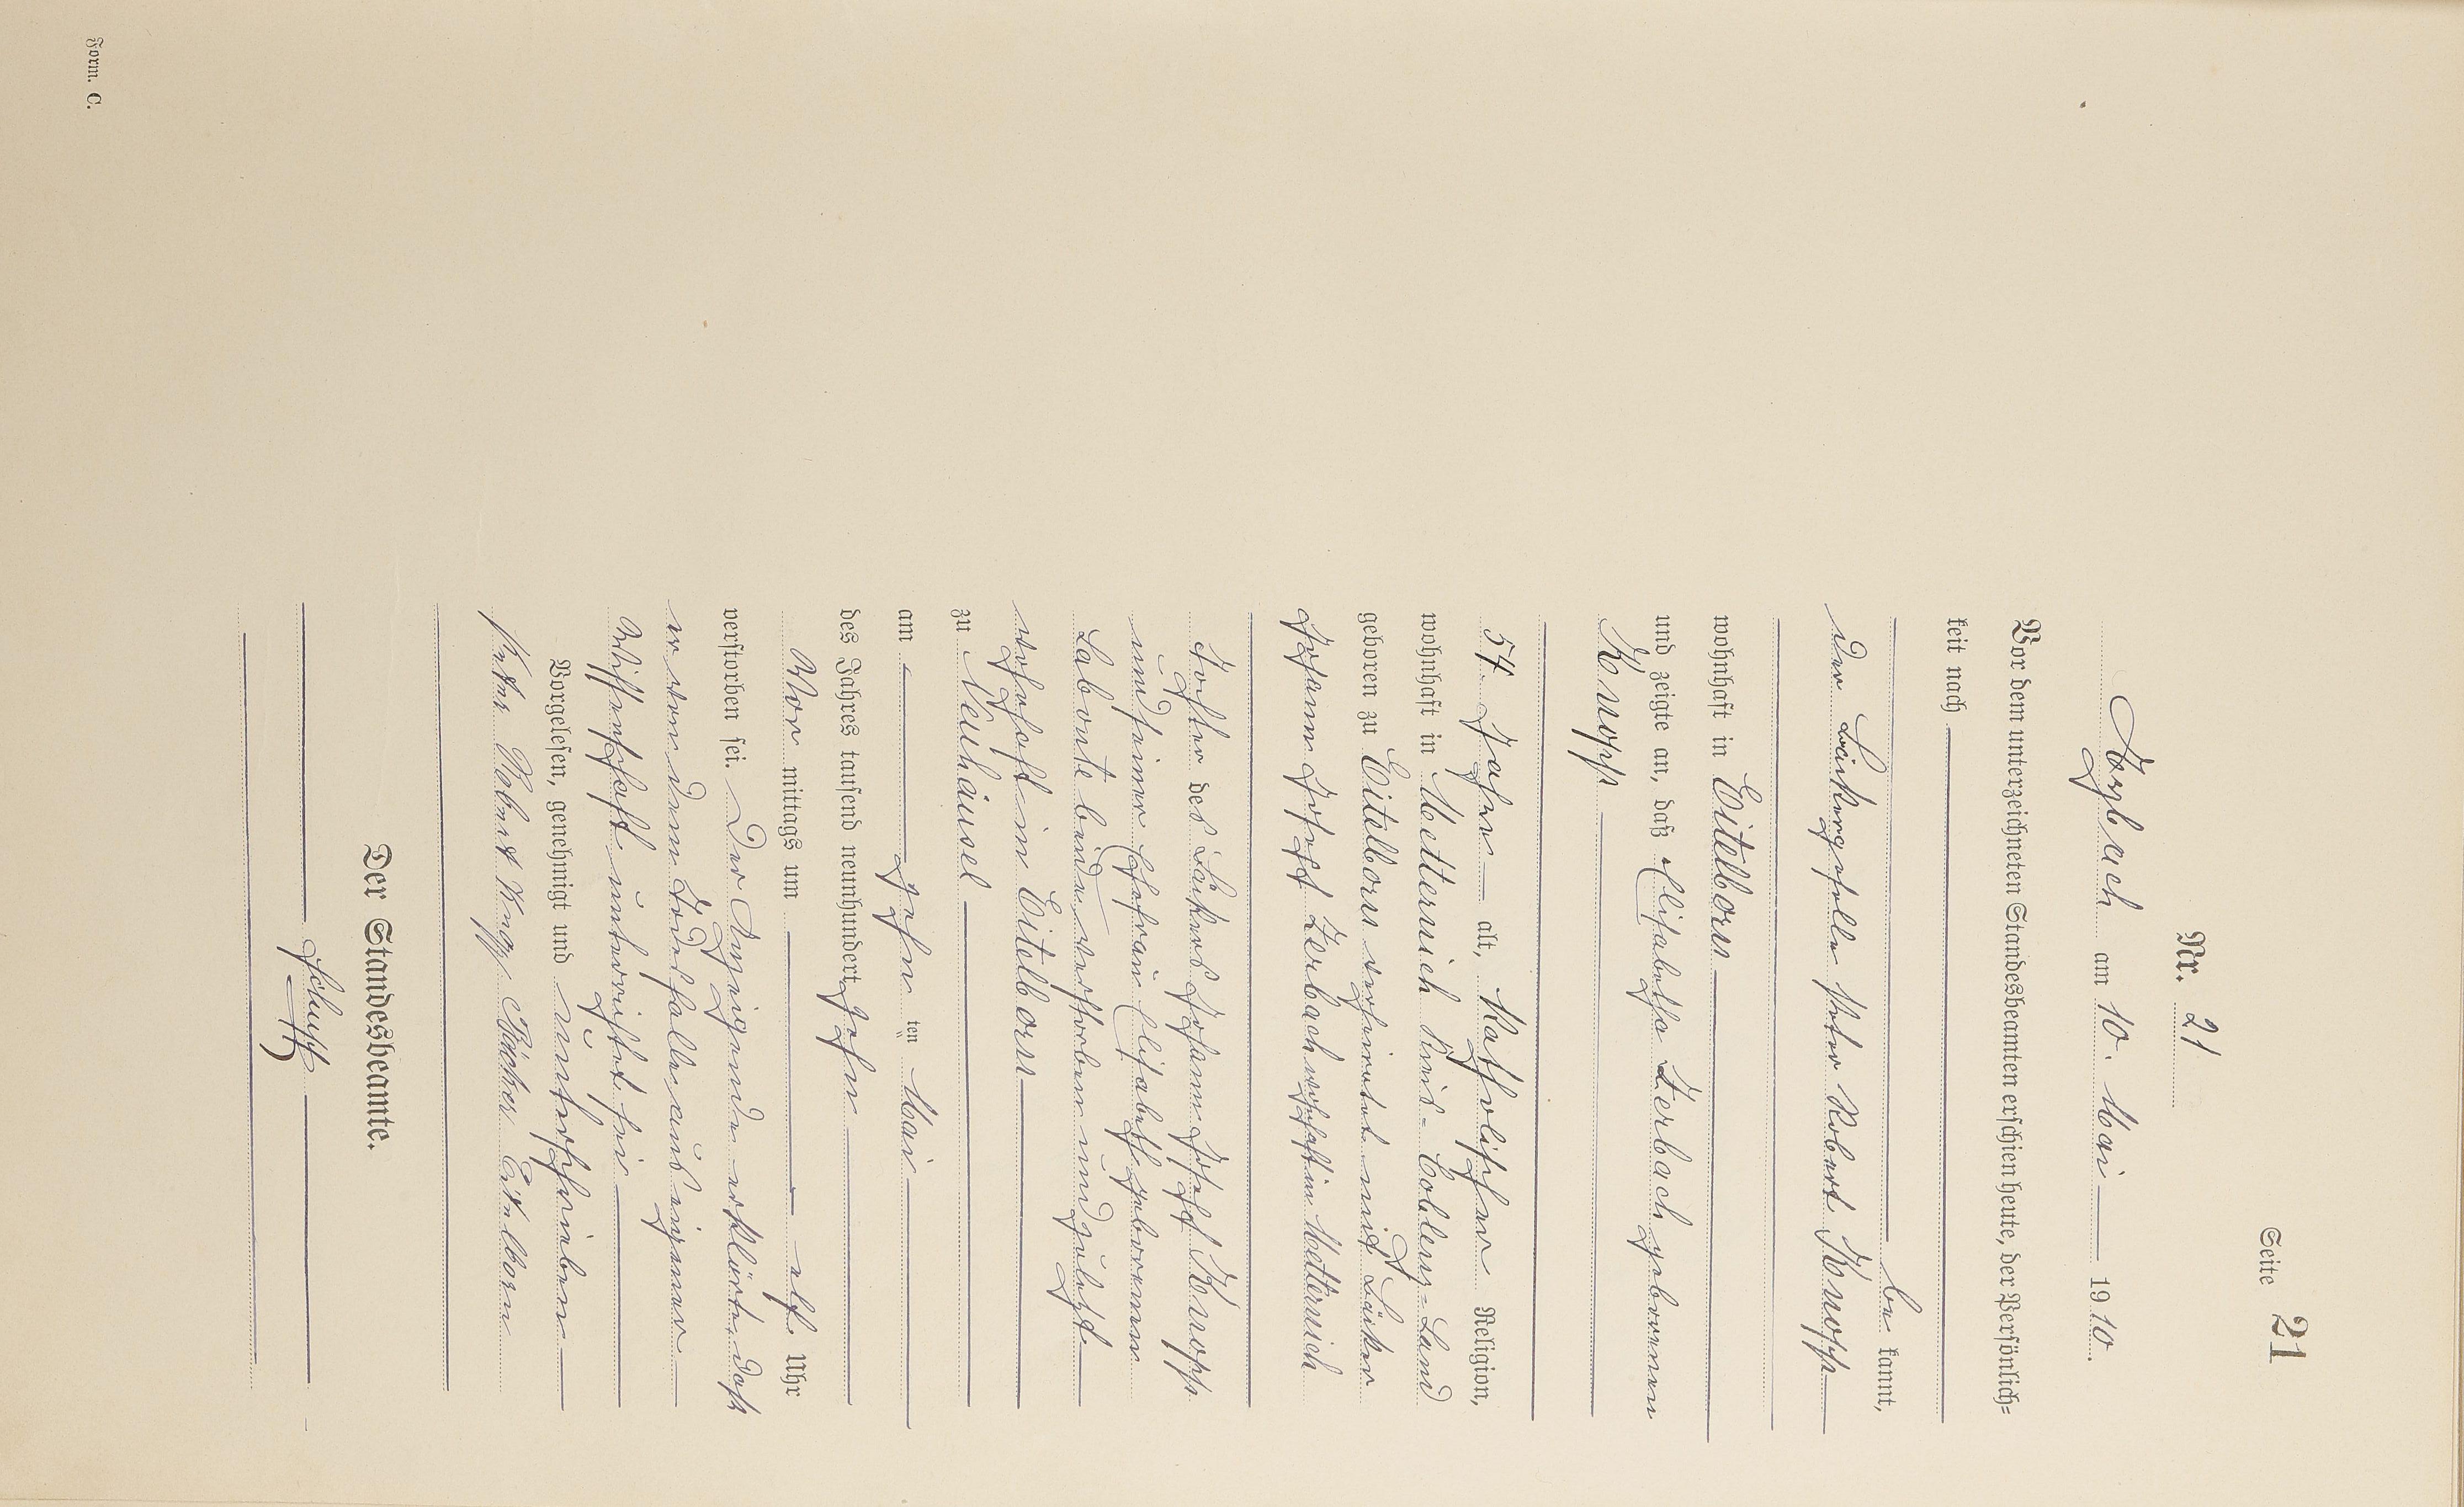 Seite 21
Nr. 21
Arzbach am 10. Mai 1910.
Vor dem unterzeichneten Standesbeamten erschien heute, der Persönlich=
keit nach
be kannt,
der Bäckergeselle Peter Robert Knopp
wohnhaft in Eitelborn
und zeigte an, daß Elisabetha Zerbach geborenen
Knopp
54 Jahre alt, katholischer Religion,
wohnhaft in Metternich Kreis=Coblenz=Land
geboren zu Eitelborn verheiratet mit Bäcker
Johann Josef Zerbach wohnhaft in Metternich
Tochter des Bäckers Johann Josef Knopp
und seiner Ehefrau Elisabeth geborenen
Labonte beide verstorben und zuletzt
wohnhaft in Eitelborn
zu Neuhäusel
am zehn ten Mai
des Jahres tausend neunhundert zehn
Vor mittags um elf Uhr
verstorben sei. Der Anzeigende erklärte, daß
er von dem Todesfalle aus eigener
Wissenschaft unterrichtet sei
Vorgelesen, genehmigt und unterschrieben
Peter Robert Knopp Bäcker Eitelborn
Der Standesbeamte.
Schupp
Form. C.